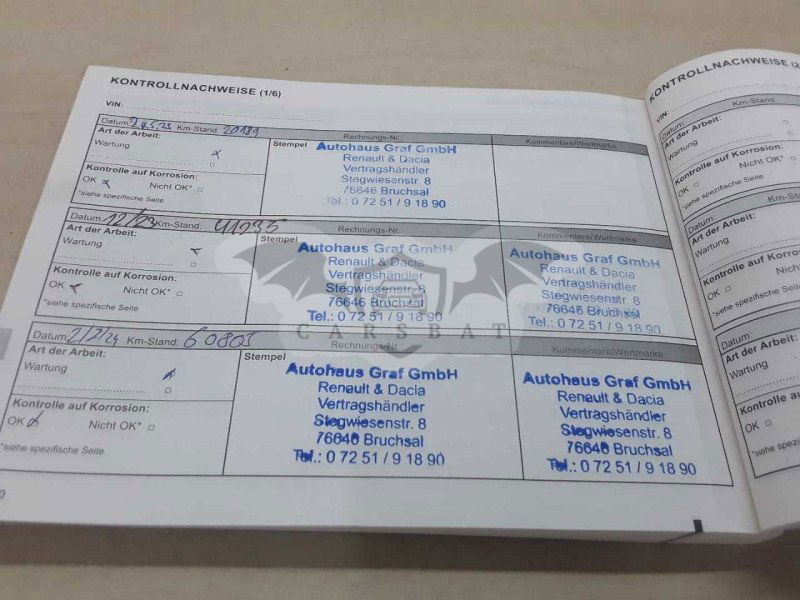 KONTROLLNACHWEISE (1/6)
VIN:
Datum: 24.5.23 Km-Stand: 20189 Rechnungs-Nr.: Kommentare/Wertmarke
Art der Arbeit:
Wartung
Kontrolle auf Korrosion:
OK Nicht OK*
*siehe spezifische Seite
Stempel
Autohaus Graf GmbH
Renault & Dacia
Vertragshändler
Stegwiesenstr. 8
76646 Bruchsal
Tel.: 0 72 51 / 9 18 90
Datum: 12/23 Km-Stand: 41235 Rechnungs-Nr.: Kommentare/Wertmarke
Art der Arbeit:
Wartung
Kontrolle auf Korrosion:
OK Nicht OK*
*siehe spezifische Seite
Stempel
Autohaus Graf GmbH
Renault & Dacia
Vertragshändler
Stegwiesenstr. 8
76646 Bruchsal
Tel.: 0 72 51 / 9 18 90
Autohaus Graf GmbH
Renault & Dacia
Vertragshändler
Stegwiesenstr. 8
76646 Bruchsal
Tel.: 0 72 51 / 9 18 90
CARSBAT
Datum: 2/7/24 Km-Stand: 60803 Rechnungs-Nr.: Kommentare/Wertmarke
Art der Arbeit:
Wartung
Kontrolle auf Korrosion:
OK Nicht OK*
*siehe spezifische Seite
Stempel
Autohaus Graf GmbH
Renault & Dacia
Vertragshändler
Stegwiesenstr. 8
76646 Bruchsal
Tel.: 0 72 51 / 9 18 90
Autohaus Graf GmbH
Renault & Dacia
Vertragshändler
Stegwiesenstr. 8
76646 Bruchsal
Tel.: 0 72 51 / 9 18 90
KONTROLLNACHWEISE (2
VIN:
Datum: Km-Stand:
Art der Arbeit:
Wartung
Kontrolle auf Korrosion:
OK Nicht OK*
*siehe spezifische Seite
Datum: Km-St
Art der Arbeit:
Wartung
Kontrolle auf Korrosion:
OK Nicht OK*
*siehe spezifische Seite
Datum:
Art der Arbeit:
Wartung
Kontrolle auf K
OK Ni
*siehe spezifische